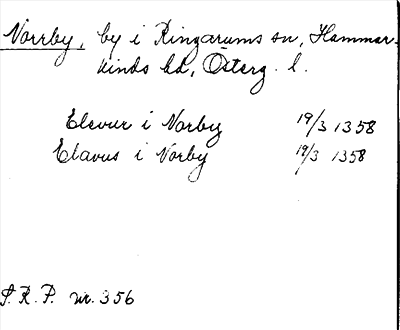 Norrby, by i Ringarums sn, Hammar-
kinds hd, Österg. l.
Elevur i Norby 19/3 1358
Elavus i Norby 19/3 1358
S. R. P. nr. 356